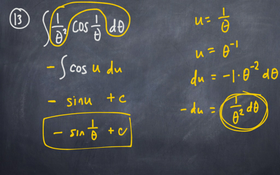 13 ∫ 1/θ² cos 1/θ dθ
- ∫ cos u du
- sin u + c
- sin 1/θ + c
u = 1/θ
u = θ⁻¹
du = -1 · θ⁻² dθ
- du = 1/θ² dθ